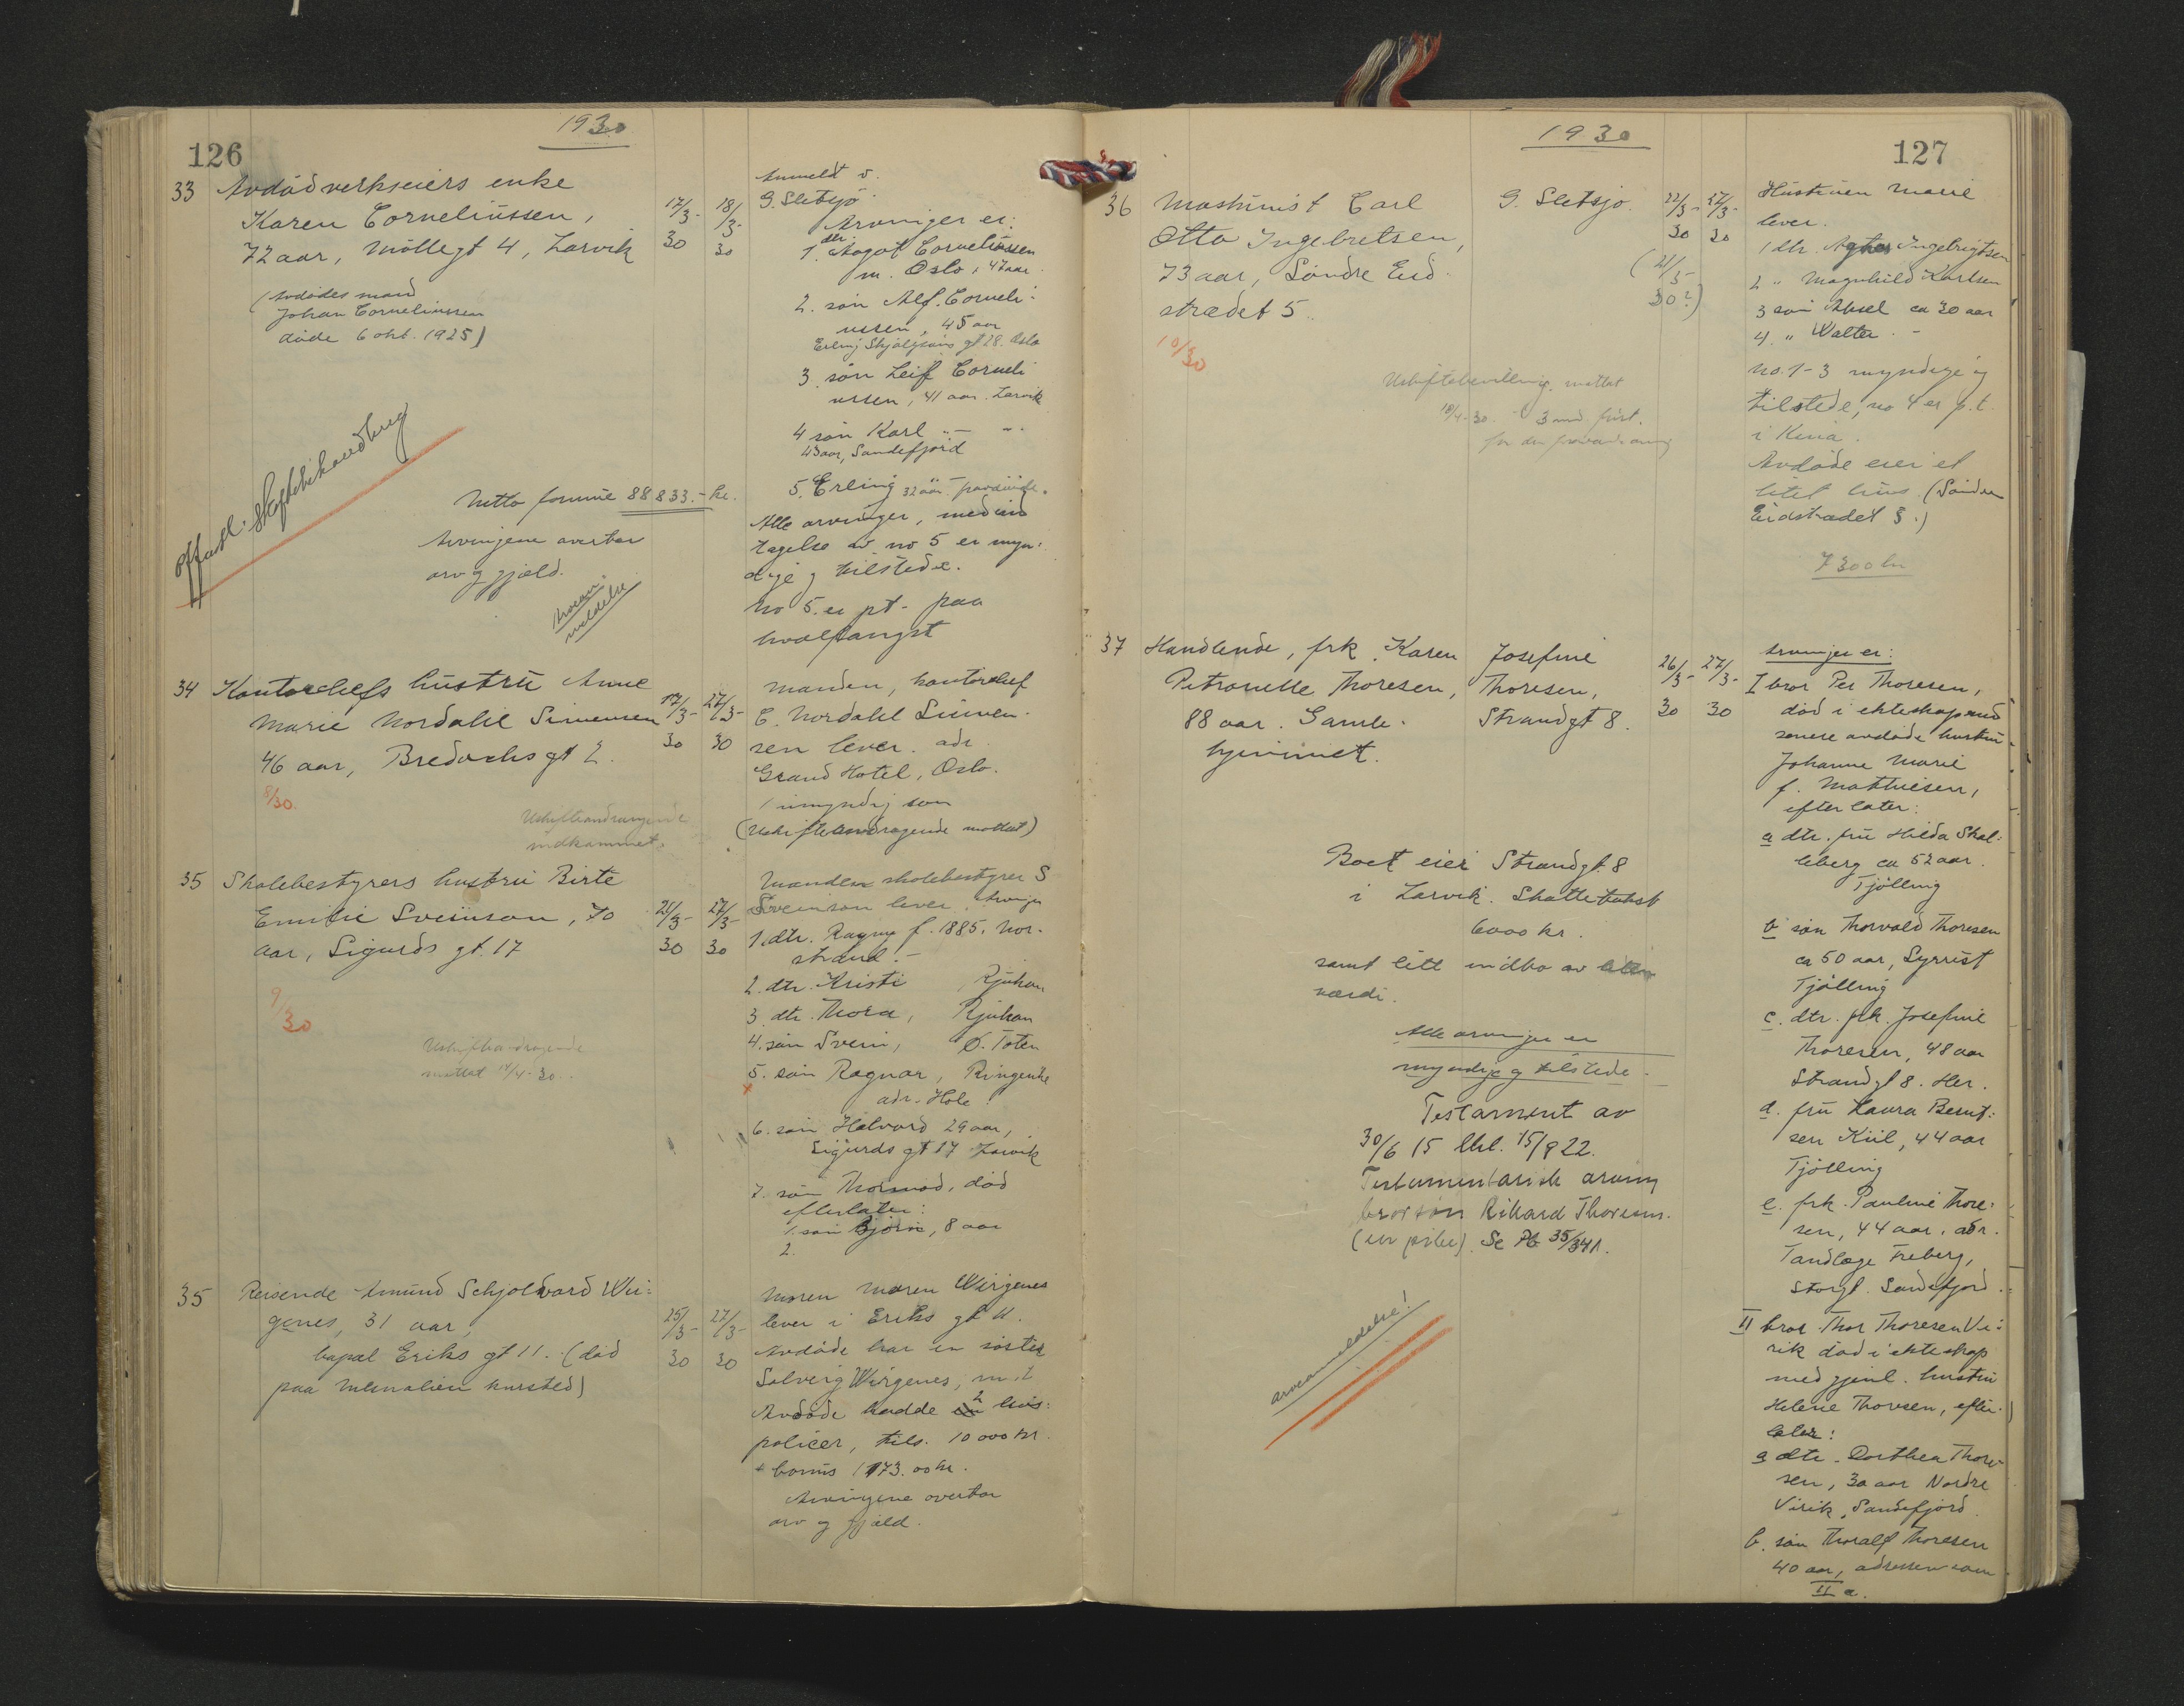 126
1930
33 Avdød verkseiers enke
Karen Corneliussen,
72 aar, Møllegt 4, Larvik
(Avdødes mand
Johan Corneliussen
døde 6 okt. 1925)
17/3-
30
18/3-
30
Anmeldt v.
G. Sletsjø.
Arvinger er:
1. dtr. Aagot Corneliussen
m. Oslo, 47 aar
2. søn Alf. Corneli-
ussen, 45 aar
Erling Skjalgsøns gt 28. Oslo
3. søn Leif Corneli
ussen, 41 aar. Larvik
4 søn Karl " "
43 aar, Sandefjord
5. Erling 32 aar
Alle arvinger, med und
tagelse av no 5 er myn-
dige og tilstede.
No 5. er pt. paa
hvalfangst
Offentl. Skiftebehandling
Netto formue 88 833.- kr.
Arvingene overtar
arv og gjæld.
Arvean-
meldelse
34 Kontorchefs hustru Anne
Marie Nordahl Simensen
46 aar, Bredochs gt 2.
8/30.
17/3-
30
27/3-
30
Manden, kontorchef
C. Nordahl Simen-
sen lever. adr.
Grand Hotel, Oslo.
1 umyndig søn
(Uskifteandragende mottat)
Uskifteandragende
indkommet.
35 Skolebestyrers hustru Birte
Emilie Sveinson, 70
aar, Sigurds gt. 17
9/30
21/3-
30
27/3-
30
Manden skolebestyrer S
Sveinson lever. Arvinger
1. dtr. Ragna f. 1885, Nor-
strand.-
2. dtr. Kristi Rjukan
3. dtr. Thora, Rjukan
4. søn Svein, Ø. Toten
5. søn Ragnar, Ringerike
x adr. Hole
6. søn Halvard 29 aar,
Sigurds gt 17 Larvik
7. søn Thormod, død
efterlater:
1. søn Bjørn, 8 aar
2.
Uskifteandragende
mottat 14/4-30.
35 Reisende Amund Schjoldvard Wir-
genes, 31 aar,
bopæl Eriks gt 11. (død
paa Mesnalien kursted)
25/3-
30
27/3-
30
Moren Maren Wirgenes
lever i Eriks gt 11.
Avdøde har en søster
Solveig Wirgenes,
Avdøde hadde 2 livs-
policer, tils. 10 000 kr.
+ bonus 1173.00 kr.
Arvingene overtar
arv og gjæld.
1930
127
36 Maskinist Carl
Otto Ingebretsen,
73 aar, Søndre Eid-
strædet 5.
10/30
G. Sletsjø.
22/3-
30
27/3-
30
(21/5-
30?)
Hustruen Marie
lever.
1 dtr. Agnes Ingebrigtsen
2 " Magnhild Karlsen
3 søn Aksel ca 30 aar
4. " Walter -
No. 1-3 myndige og
tilstede, no 4 er p.t.
i Kina.
Avdøde eier et
litet hus. (Søndre
Eidstrædet 3.)
7300 kr
Uskiftebevilling. mottat
18/4-30. 3 mnd. frist.
37 Handlende, frk. Karen
Petronelle Thoresen,
88 aar. Gamle-
hjemmet.
Josefine
Thoresen,
Strandgt 8.
26/3-
30
27/3-
30
Arvinger er:
I bror Per Thoresen,
død i ekteskap med
senere avdøde hustru
Johanne Marie
f. Mathiesen,
efterlater:
a dtr. fru Hilda Skal-
leberg ca 52 aar.
Tjølling
b søn Thorvald Thoresen
ca 50 aar, Syrrist
Tjølling
c. dtr. frk. Josefine
Thoresen, 48 aar
Strandgt 8. Her.
d. fru Laura Bernt-
sen Kiil, 44 aar
Tjølling
e. frk. Pauline Thore-
sen, 44 aar, adr.
Tandlæge Freberg,
Storgt. Sandefjord.
II bror Thor Thoresen Vi-
rik død i ekteskap
med gjenl. hustru
Helene Thoresen, efter-
later:
a dtr. Dorthea Thore-
sen, 30 aar Nordre
Virik, Sandefjord.
b. søn Thoralf Thoresen
40 aar, adressen som
II a.
Boet eier Strandgt. 8
i Larvik. Skattetakst
6000 kr.
samt litt indbo av liten
værdi.
Alle arvinger er
myndige og tilstede.
Testament av
30/6 15 tlvl. 15/9 22.
Testamentarisk arving
brorsøn Rikard Thoresen.
Se Pb 35/341.
arveanmeldelse!